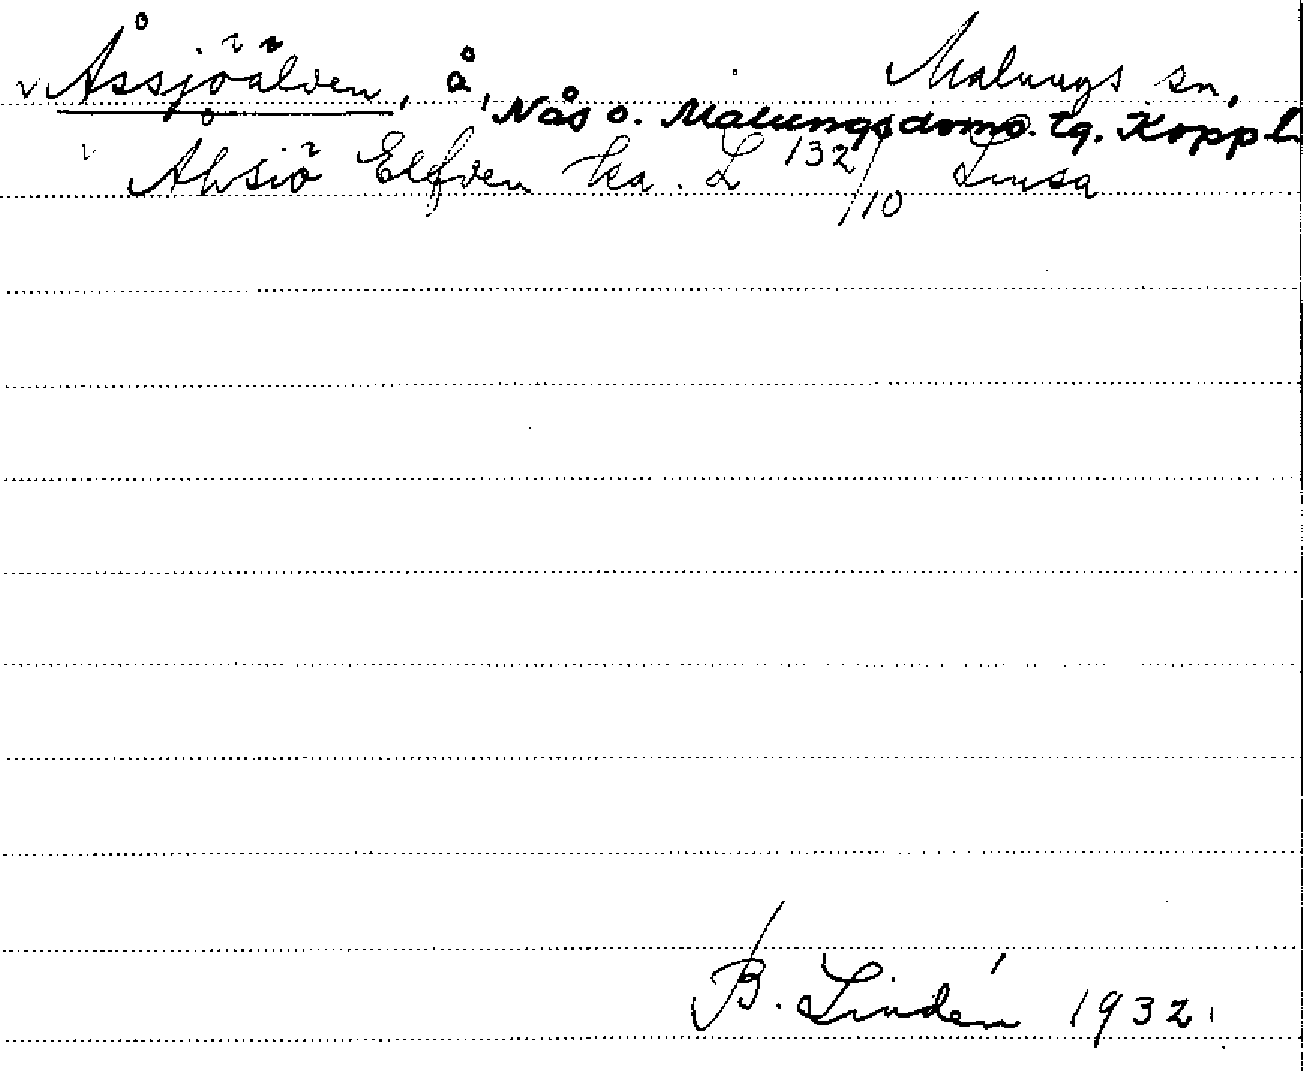 Åssjöälven, å, Malungs sn,
Nås o. Malungs doms. tg. Koppb.
Åhsiö Elfven ka. L 132/10 Limsa
B. Lindén 1932.